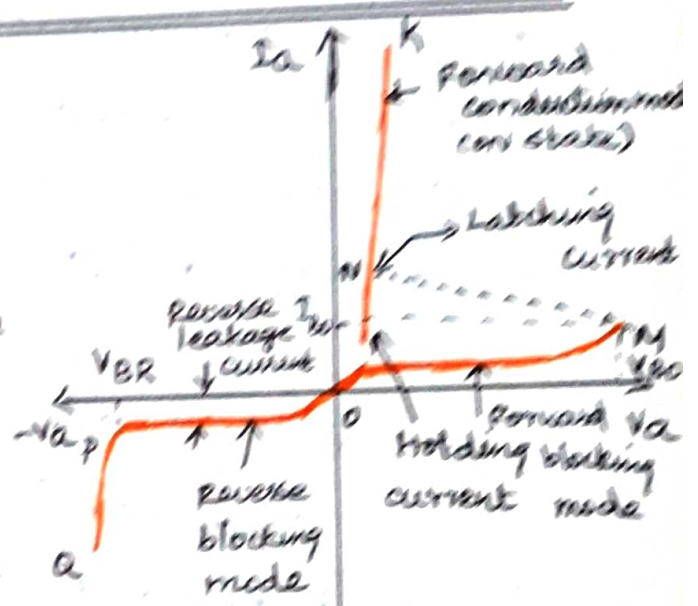 Ia
K
Forward
conduction mode
(on state)
Latching
current
N
Reverse
leakage
current
VBR
M
VBO
-Va
P
O
Va
Forward
blocking
mode
Holding
current
Reverse
blocking
mode
Q